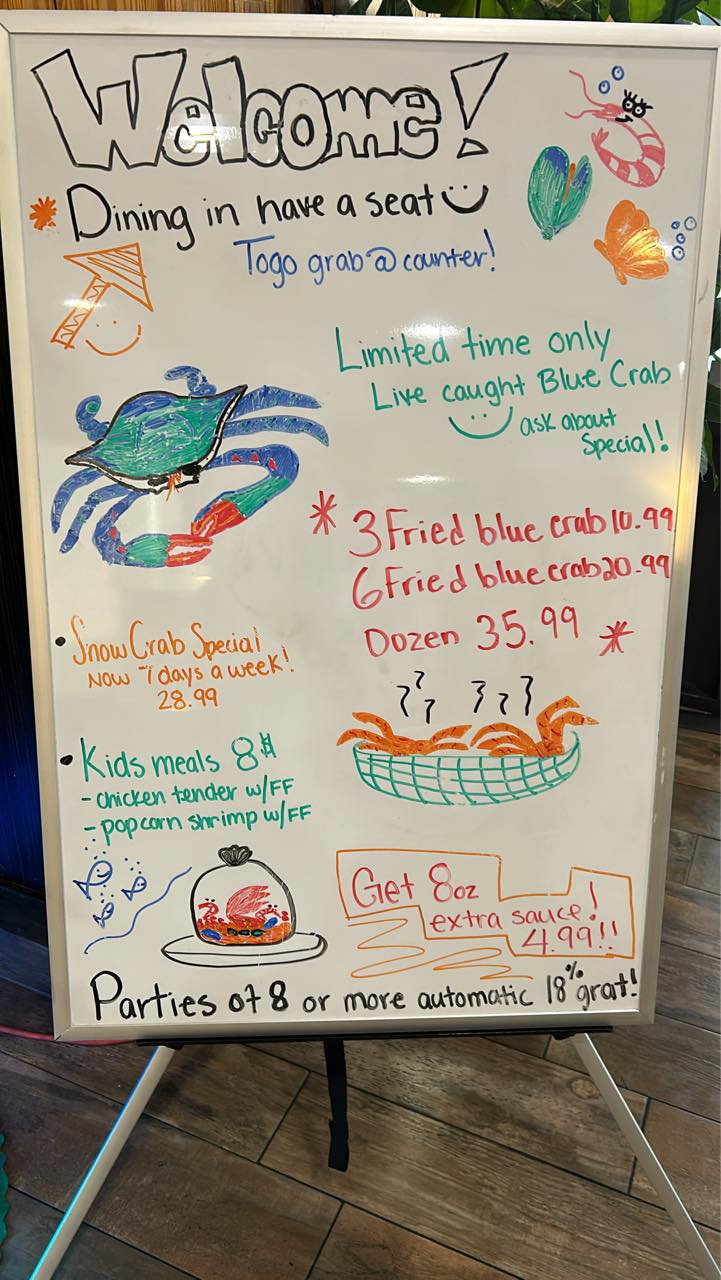 Welcome!
Dining in have a seat
Togo grab @ counter!
Limited time only
Live caught Blue Crab
ask about
Special!
* 3 Fried blue crab 10.99
6 Fried blue crab 20.99
Dozen 35.99 *
• Snow Crab Special
Now 7 days a week!
28.99
• Kids meals 8$
- chicken tender w/FF
- popcorn shrimp w/FF
Get 8oz
extra sauce!
4.99!!
Parties of 8 or more automatic 18% grat!